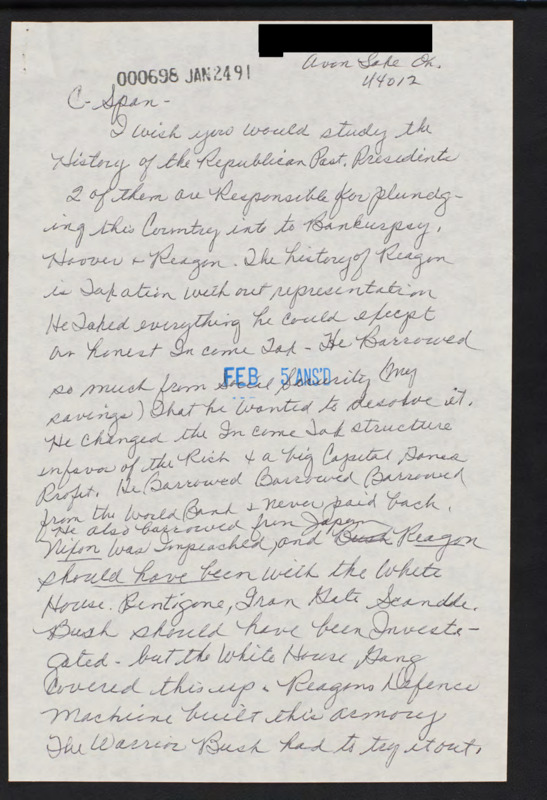 000698 JAN 24 91
Avon Lake Oh.
44012
C-Span-
I wish you would study the
History of the Republican Past. Presidents
2 of them are Responsible for plundg-
ing this Country into to Bankurpsy.
Hoover & Reagon. The history of Reagon
is Taxation with out representation
He Taxed everything he could except
an honest In come Tax - He Barrowed
so much from Social Security (my
FEB 5 ANS'D
savings) That he wanted to desolve it.
He changed the In come Tax structure
infavor of the Rich & a big Capital Gains
Profit. He Barrowed Barrowed Barrowed
from the World Bank & never paid back.
He also barrowed from Japan
Nixon was Impeached, and Bush Reagon
should have been with the White
House. Pentigone, Iran Gate Scandde.
Bush should have been Investa-
gated - but the White House Gang
Covered this up. Reagons Defence
Machine built this armory
The Warrior Bush had to try it out.